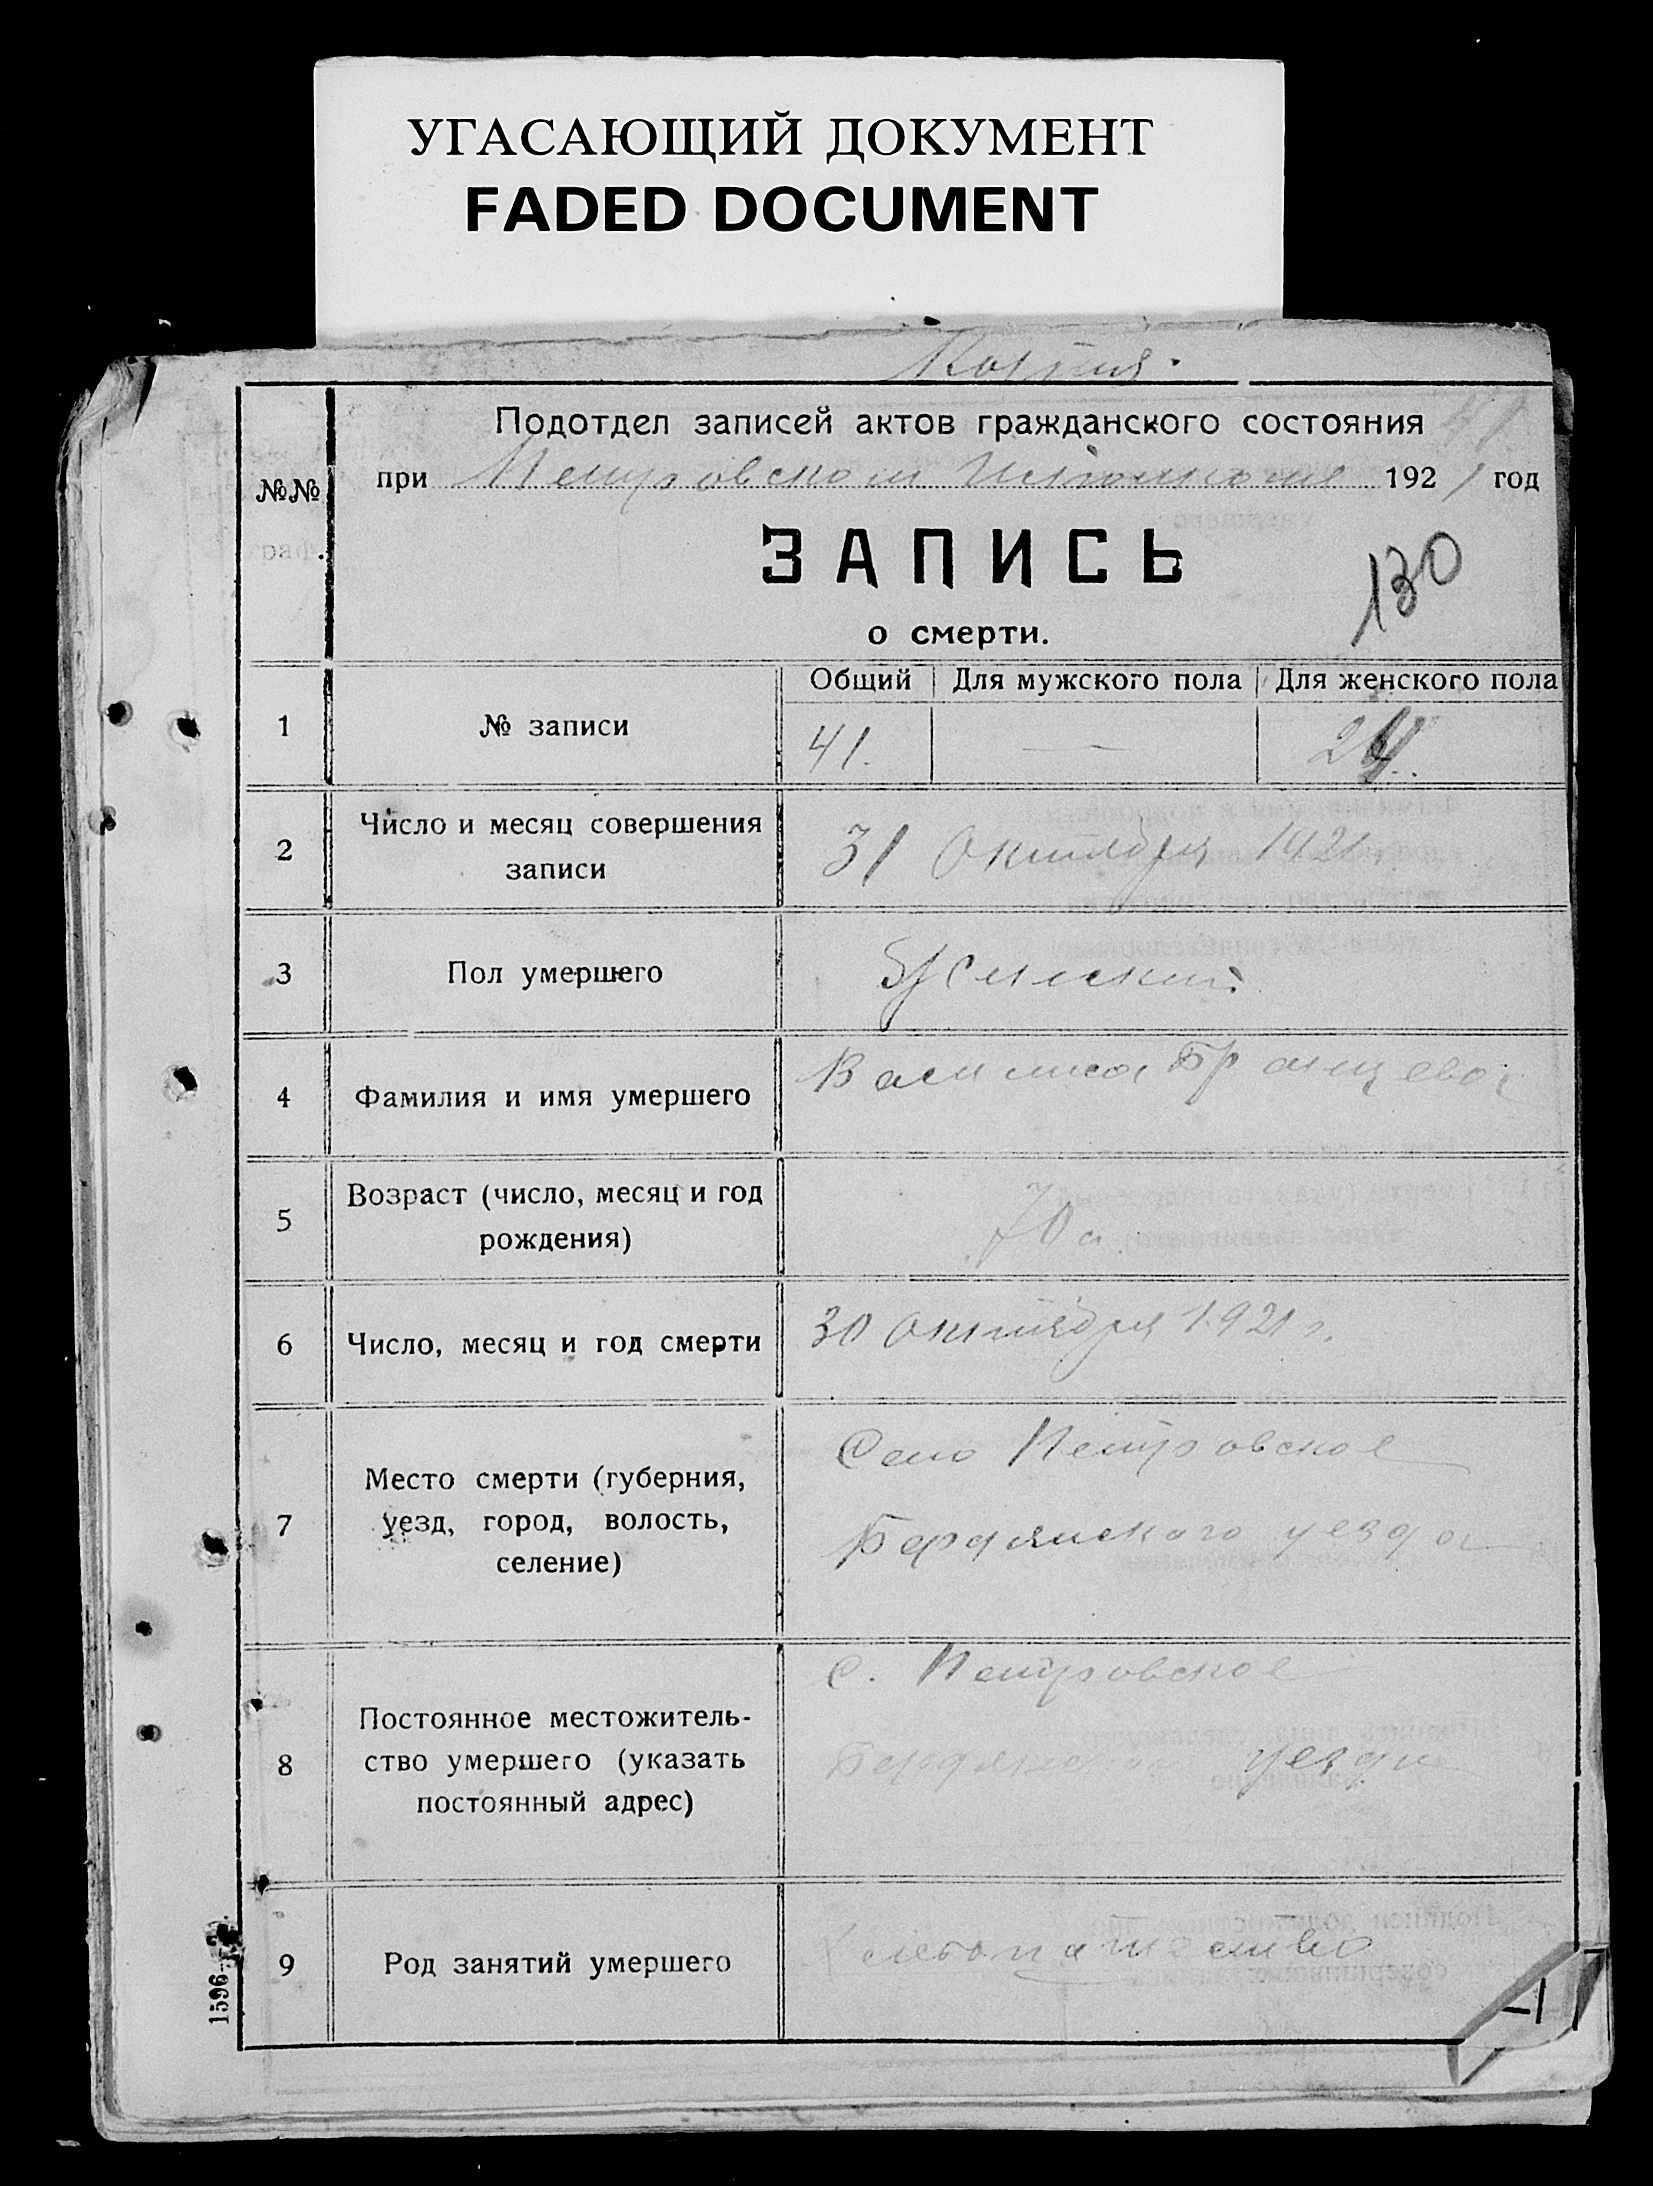 УГАСАЮЩИЙ ДОКУМЕНТ
FADED DOCUMENT
Копия.
Подотдел записей актов гражданского состояния
41
при Петровском Исполкоме 1921 год
№№
ЗАПИСЬ
130
о смерти.
Общий Для мужского пола Для женского пола
1 № записи 41. — 24.
2 Число и месяц совершения
записи
31 Октября 1921 г.
3 Пол умершего Женский
4 Фамилия и имя умершего Василиса Бранцева
5 Возраст (число, месяц и год
рождения)
70 л.
6 Число, месяц и год смерти 30 Октября 1921 г.
7 Место смерти (губерния,
уезд, город, волость,
селение)
Село Петровское
Бердянского уезда
8 Постоянное местожитель-
ство умершего (указать
постоянный адрес)
с. Петровское
Бердянского уезда
9 Род занятий умершего Хлебопашество
1596—2).